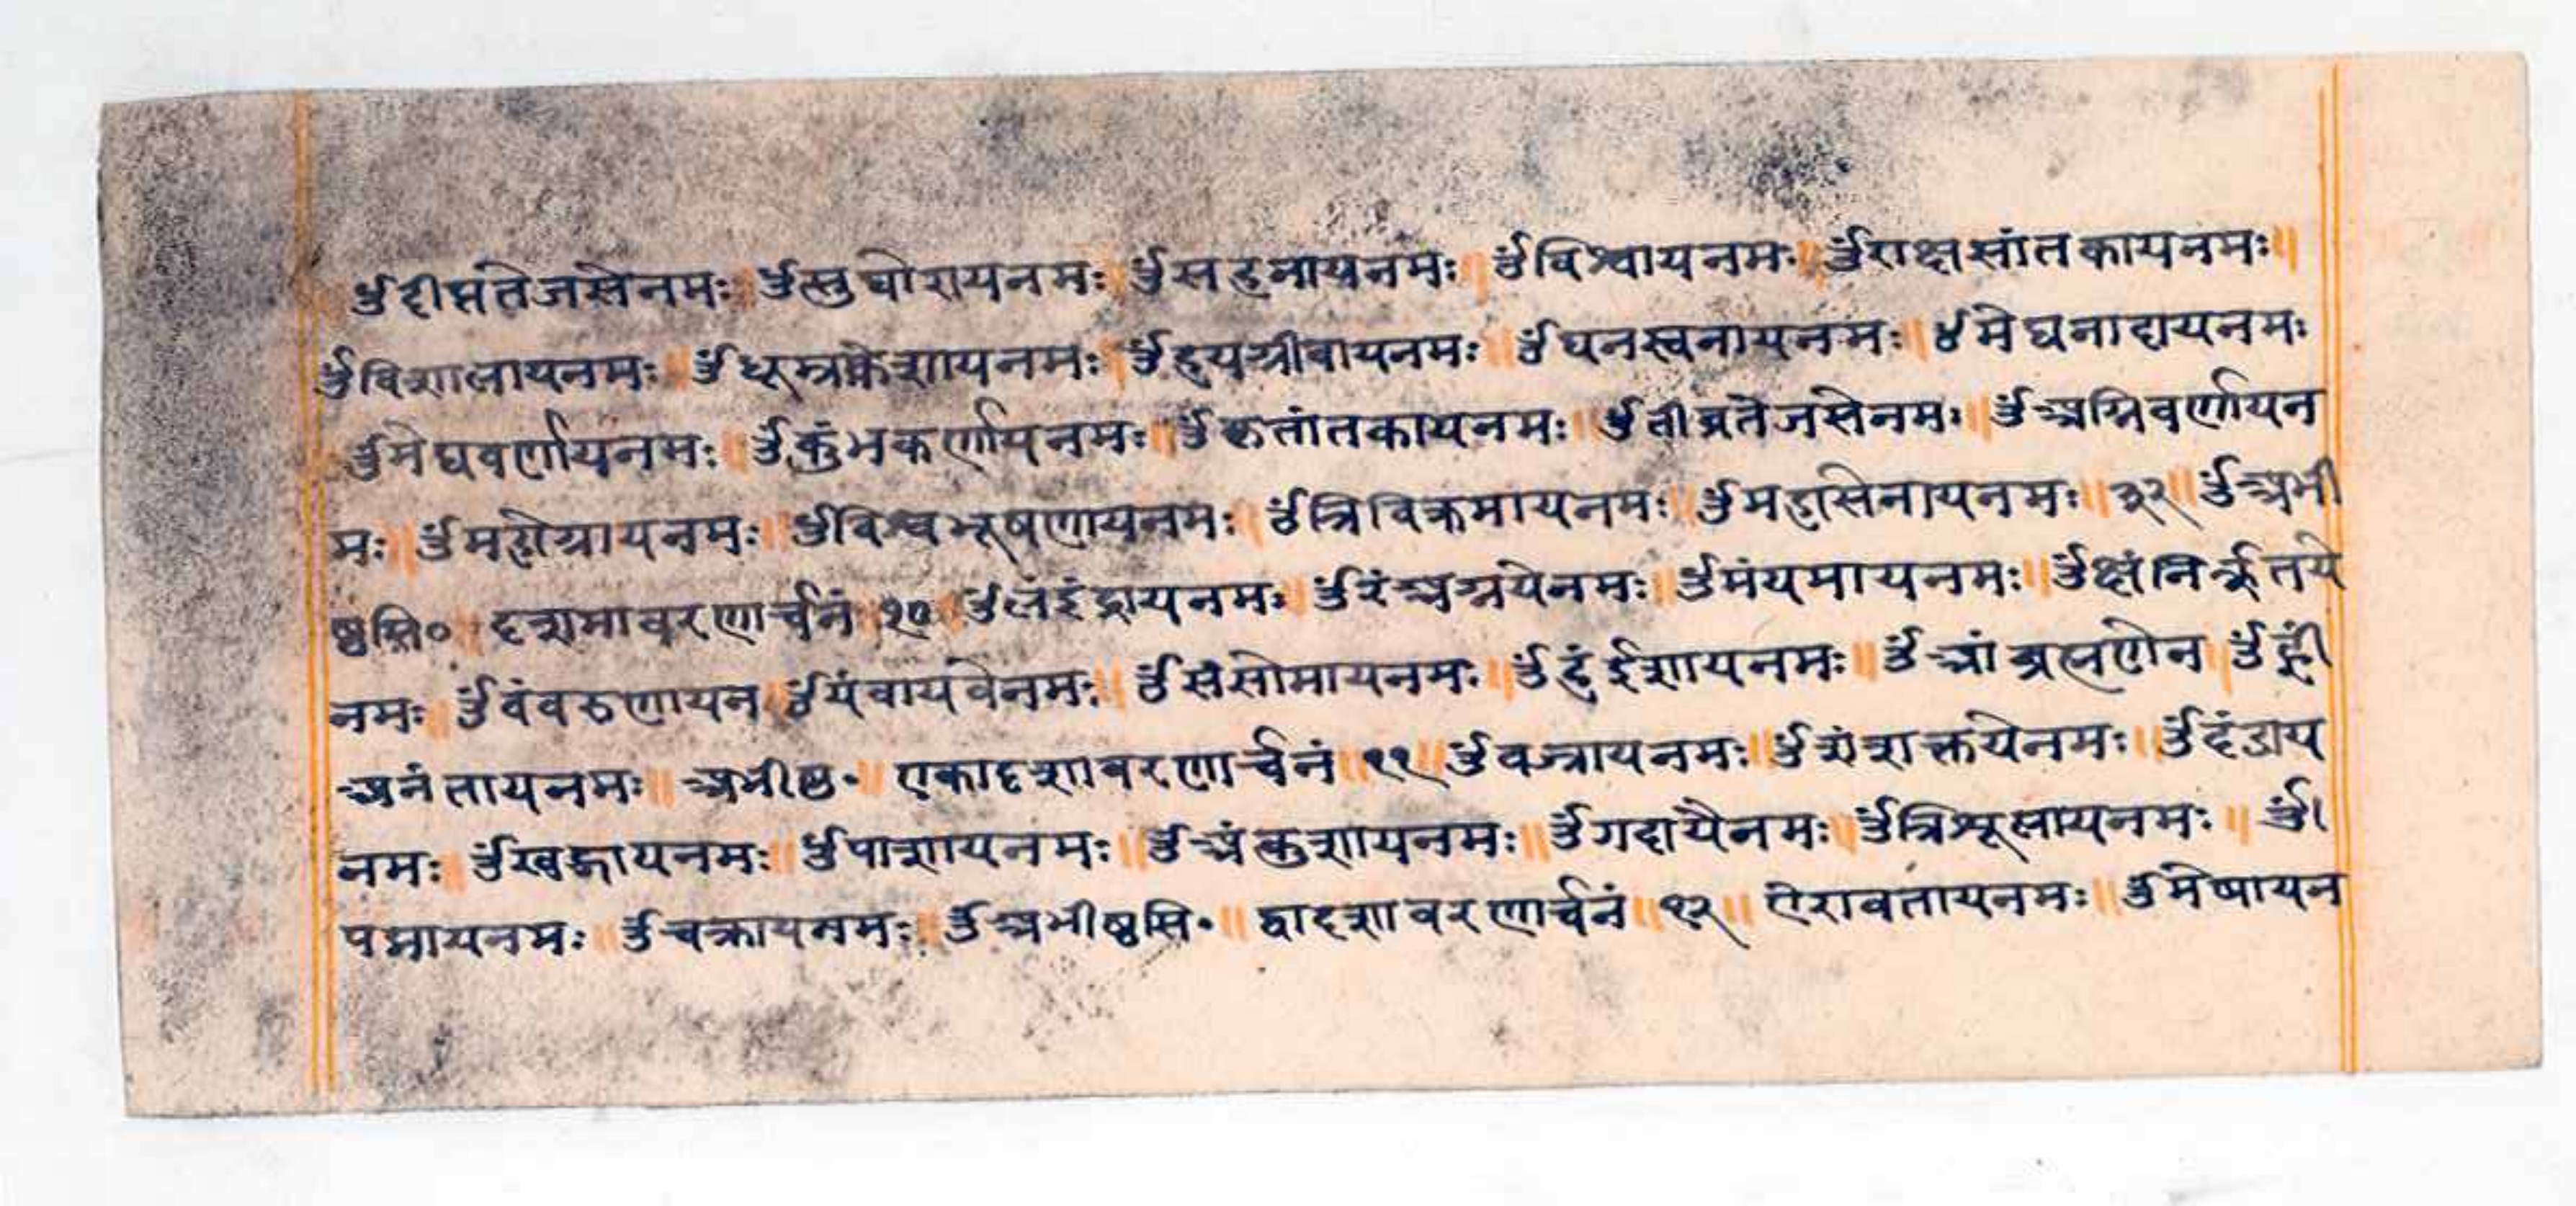 ॐदीप्ततेजसेनमः॥ॐसुघोरायनमः॥ॐसहनायनमः॥ॐविश्वायनमः॥ॐराक्षसांतकायनमः॥
ॐविशालायनमः॥ॐधूम्रकेशायनमः॥ॐहयग्रीवायनमः॥ॐघनस्वनायनमः॥ॐमेघनादायनमः
ॐमेघवर्णायनमः॥ॐकुंभकर्णायनमः॥ॐकृतांतकायनमः॥ॐतीव्रतेजसेनमः॥ॐअग्निवर्णायन
मः॥ॐमहोग्रायनमः॥ॐविश्वभूषणायनमः॥ॐत्रिविक्रमायनमः॥ॐमहासेनायनमः॥३२॥ॐअभी
ष्टसि॰ दशमावरणार्चनं १० ॐलंइंद्रायनमः॥ॐरंअग्नयेनमः॥ॐमंयमायनमः॥ॐक्षंनिर्ऋतये
नमः॥ॐवंवरुणायन॥ॐयंवायवेनमः॥ॐसंसोमायनमः॥ॐहंईशायनमः॥ॐआंब्रह्मणेन॥ॐह्रीं
अनंतायनमः॥अभीष्ट॰॥एकादशावरणार्चनं॥११॥ॐवज्रायनमः॥ॐशंशक्तयेनमः॥ॐदंडाय
नमः॥ॐखड्गायनमः॥ॐपाशायनमः॥ॐअंकुशायनमः॥ॐगदायैनमः॥ॐत्रिशूलायनमः॥ॐ
पद्मायनमः॥ॐचक्रायनमः॥ॐअभीष्टसि॰॥द्वादशावरणार्चनं॥१२॥ऐरावतायनमः॥ॐमेषायन